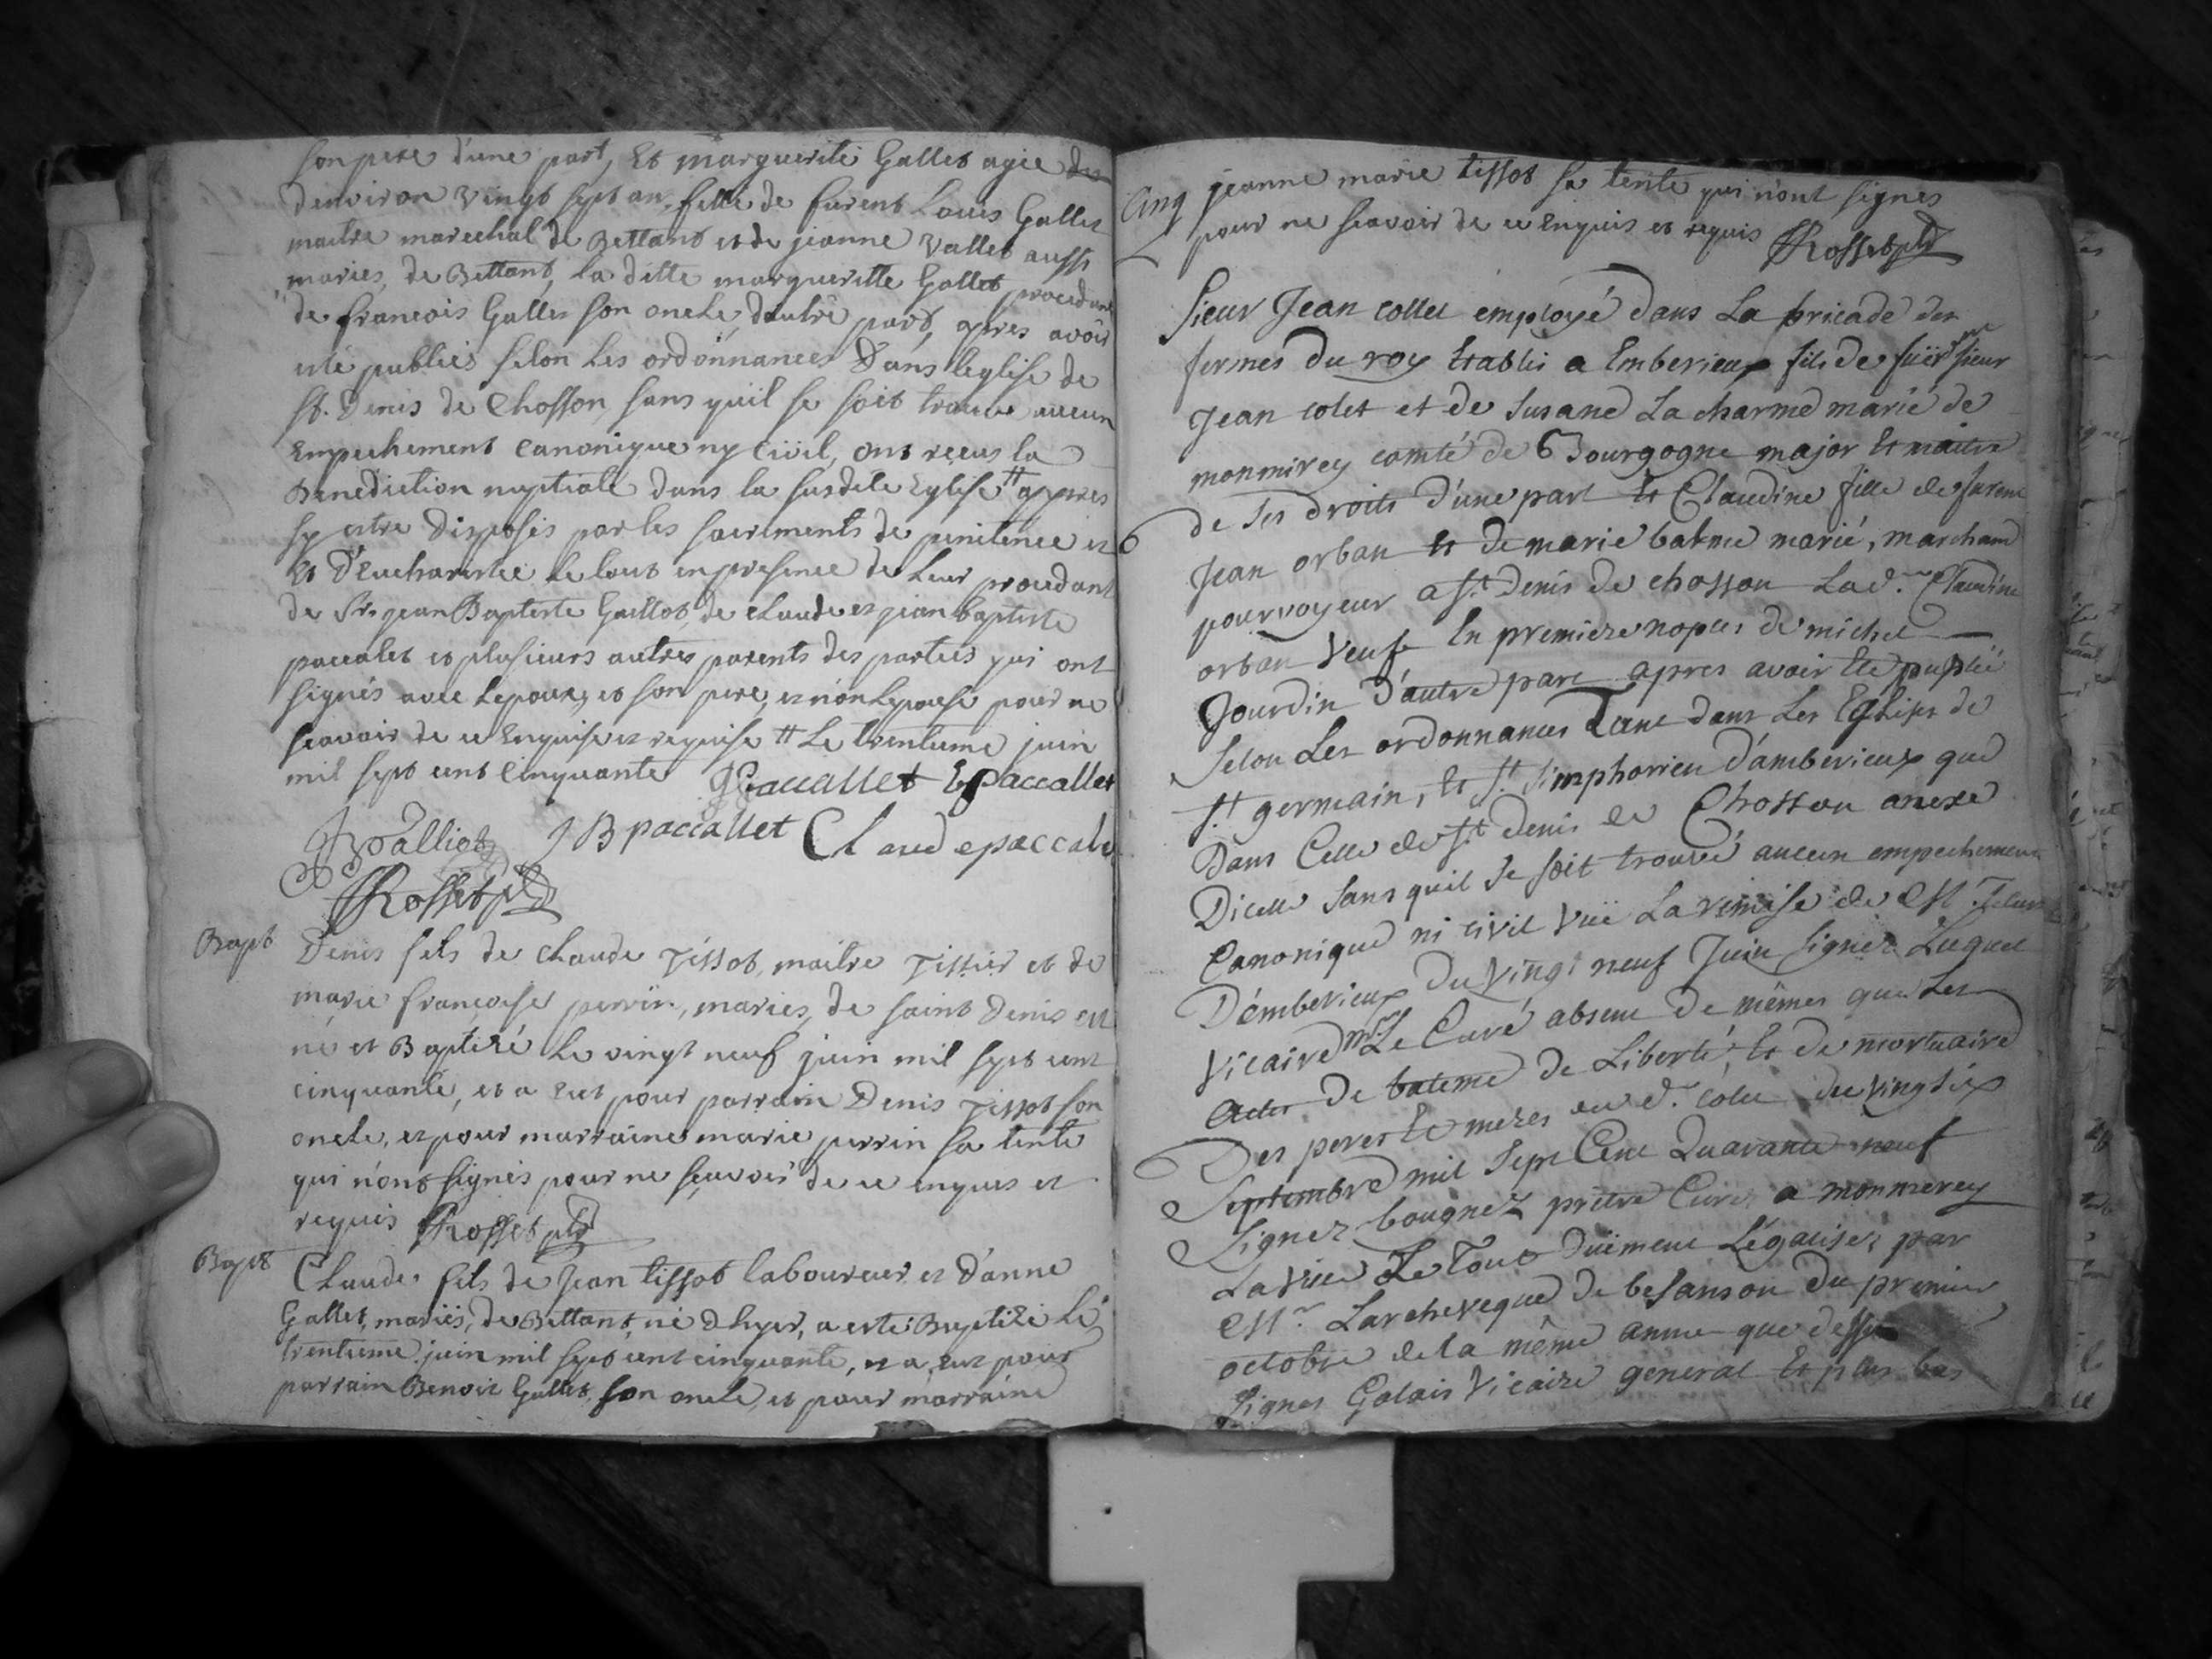 son pere d'une part, et marguerite Gallet agée
denviron vingt sept an, fille de furent Louis Gallet
maitre marechal de Bettant et de jeanne Vallet aussi
mariés, de Bettant, la ditte margueritte Gallet procedant
de francois Gallet son oncle, dautre part, apres avoir
eté publiés selon les ordonnances Dans leglise de
St. Denis de Chosson, sans quil se soit trouvé aucun
empechement canonique ny civil, ont recus la
Benediction nuptiale dans la susdite Eglise # appres
sy estre Disposés par les sacrements de penitence et
et D'Eucharistie le tout en presence de leur procedant
de Sr. jean Baptiste Galliot, de claude et jean baptiste
paccalet et plusieurs autres parents des parties qui ont
signés avec lepoux, et son pere, et non lepouse pour ne
scavoir de ce Enquise et requise # Le trentieme juin
mil sept cent cinquante Paccallet Epaccallet
Galliot JB paccallet Claude paccalet
Rosset ptr
Bapt Denis fils de claude Tissot, maitre Tissier et de
marie francoise perrin, mariés, de saint Denis est
né et Baptizé Le vingt neuf juin mil sept cent
cinquante, et a eut pour parrain Denis Tissot son
oncle, et pour marraine marie perrin sa tente
qui n'ont signés pour ne scavoir de ce enquis et
requis Rosset ptr
Bapt Claude, fils de Jean tissot laboureur et D'anne
Gallet, mariés, de Bettant, né dhyer, a esté Baptizé le
trentieme juin mil sept cent cinquante, et a eut pour
parrain Benoit Gallet, son oncle, et pour marraine
Cinq jeanne marie tissot sa tente qui n'ont signés
pour ne scavoir de ce enquis et requis Rosset ptr
Sieur Jean collet employé dans La bricade des
fermes du roy Etablis a Emberieux fils de sieur
Jean colet et de Susane La charme marié de
monmirey comté de Bourgogne major Et maitre
de ses droits d'une part Et Claudine fille de furent
Jean orban Et de marie balme marié, marchand
pourvoyeur a St. Denis de chosson La d. Claudine
orban Veufe En premiere nopces de michel
Jourdin D'autre part apres avoir Ete publié
Selon Les ordonnances Tant dans Les Eglises de
St. germain, Et St. simphorien D'amberieux que
Dans Celle de St. denis de Chosson anexe
Dicelle Sans quil se soit trouvé aucun empechement
Canonique ni civil Vuë La remise de
D'emberieux Du Vingt neuf Juin signez
Vicaire mr. Le Curé absent De mêmes que Les
actes De bateme De Liberté, Et De mortuaire
Des peres Et meres du d. colet du Vingt six
Septembre mil Sept Cent Quarante neuf
Signez bougnez prêtre Curé a monmerey
La Ville Le Tout Duëment Légalisez par
Mr. Larcheveque De besanson Du premier
octobre de la même année que dessus
Signes Galois Vicaire general Et plus bas